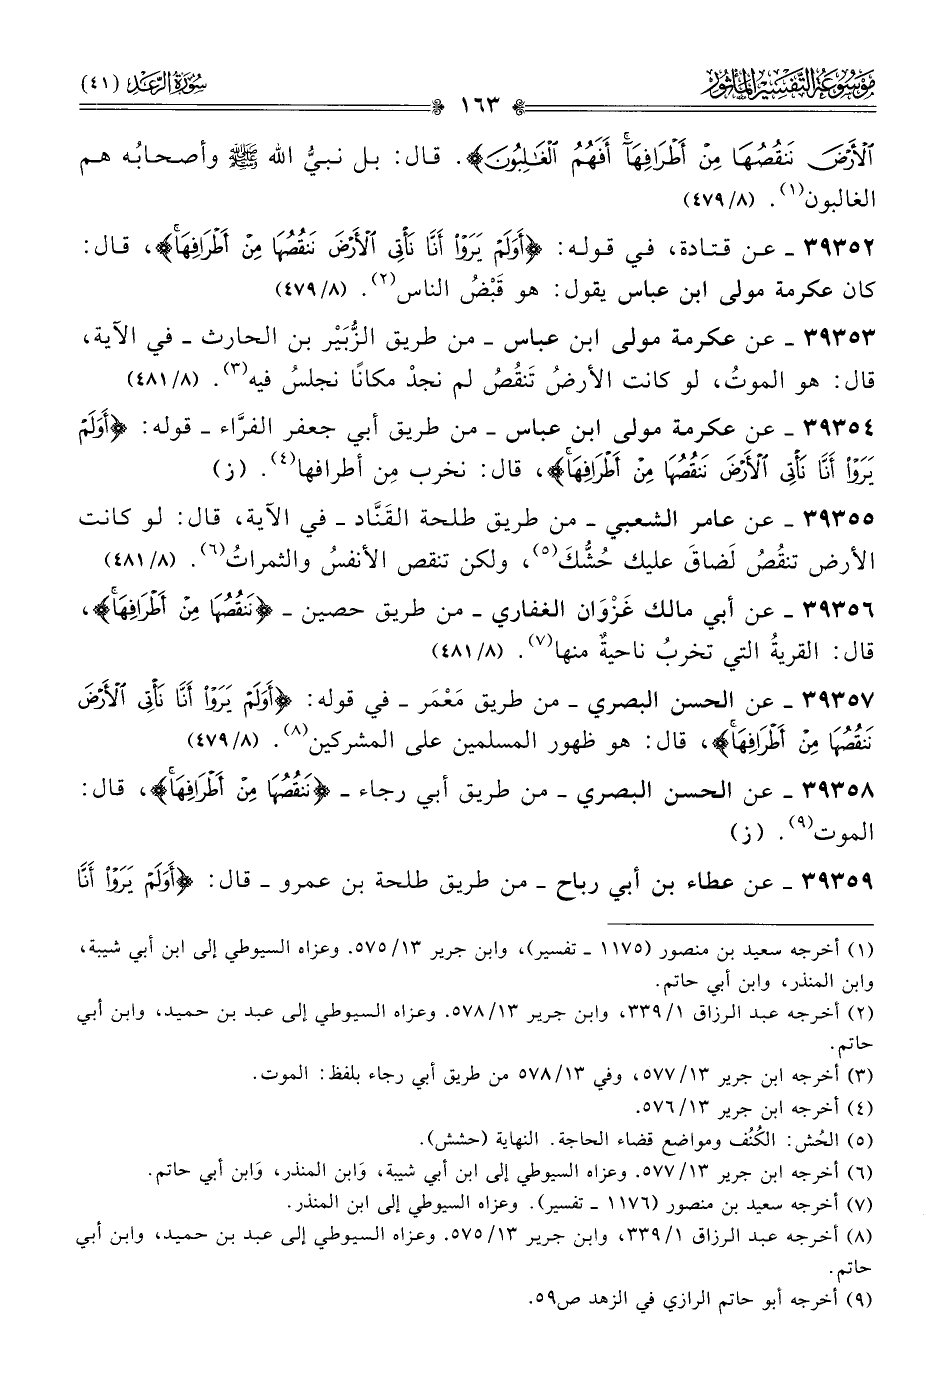 مَوْسُوعَة التَّفْسِيْر المَأْثُور
سُورَةُ الرَّعْد (٤١)
١٦٣
ٱلْأَرْضَ نَنقُصُهَا مِنْ أَطْرَافِهَآۚ أَفَهُمُ ٱلْغَـٰلِبُونَ﴾. قال: بل نبيُّ الله ﷺ وأصحابُه هم
الغالبون(١). (٤٧٩/٨)
٣٩٣٥٢ ـ عن قتادة، في قوله: ﴿أَوَلَمْ يَرَوْا۟ أَنَّا نَأْتِى ٱلْأَرْضَ نَنقُصُهَا مِنْ أَطْرَافِهَاۚ﴾، قال:
كان عكرمة مولى ابن عباس يقول: هو قَبْضُ الناس(٢). (٤٧٩/٨)
٣٩٣٥٣ ـ عن عكرمة مولى ابن عباس ـ من طريق الزُّبَيْر بن الحارث ـ في الآية،
قال: هو الموتُ، لو كانت الأرضُ تَنقُصُ لم نجدْ مكانًا نجلسُ فيه(٣). (٤٨١/٨)
٣٩٣٥٤ ـ عن عكرمة مولى ابن عباس ـ من طريق أبي جعفر الفرَّاء ـ قوله: ﴿أَوَلَمْ
يَرَوْا۟ أَنَّا نَأْتِى ٱلْأَرْضَ نَنقُصُهَا مِنْ أَطْرَافِهَاۚ﴾، قال: نخرب مِن أطرافها(٤). (ز)
٣٩٣٥٥ ـ عن عامر الشعبي ـ من طريق طلحة القَنَّاد ـ في الآية، قال: لو كانت
الأرض تنقُصُ لَضاقَ عليك حُشُّكَ(٥)، ولكن تنقص الأنفسُ والثمراتُ(٦). (٤٨١/٨)
٣٩٣٥٦ ـ عن أبي مالك غَزْوَان الغفاري ـ من طريق حصين ـ ﴿نَنقُصُهَا مِنْ أَطْرَافِهَاۚ﴾،
قال: القريةُ التي تخربُ ناحيةٌ منها(٧). (٤٨١/٨)
٣٩٣٥٧ ـ عن الحسن البصري ـ من طريق مَعْمَر ـ في قوله: ﴿أَوَلَمْ يَرَوْا۟ أَنَّا نَأْتِى ٱلْأَرْضَ
نَنقُصُهَا مِنْ أَطْرَافِهَاۚ﴾، قال: هو ظهور المسلمين على المشركين(٨). (٤٧٩/٨)
٣٩٣٥٨ ـ عن الحسن البصري ـ من طريق أبي رجاء ـ ﴿نَنقُصُهَا مِنْ أَطْرَافِهَاۚ﴾، قال:
الموت(٩). (ز)
٣٩٣٥٩ ـ عن عطاء بن أبي رباح ـ من طريق طلحة بن عمرو ـ قال: ﴿أَوَلَمْ يَرَوْا۟ أَنَّا
(١) أخرجه سعيد بن منصور (١١٧٥ ـ تفسير)، وابن جرير ٥٧٥/١٣. وعزاه السيوطي إلى ابن أبي شيبة،
وابن المنذر، وابن أبي حاتم.
(٢) أخرجه عبد الرزاق ٣٣٩/١، وابن جرير ٥٧٨/١٣. وعزاه السيوطي إلى عبد بن حميد، وابن أبي
حاتم.
(٣) أخرجه ابن جرير ٥٧٧/١٣، وفي ٥٧٨/١٣ من طريق أبي رجاء بلفظ: الموت.
(٤) أخرجه ابن جرير ٥٧٦/١٣.
(٥) الحُش: الكُنُف ومواضع قضاء الحاجة. النهاية (حشش).
(٦) أخرجه ابن جرير ٥٧٧/١٣. وعزاه السيوطي إلى ابن أبي شيبة، وَابن المنذر، وَابن أبي حاتم.
(٧) أخرجه سعيد بن منصور (١١٧٦ ـ تفسير). وعزاه السيوطي إلى ابن المنذر.
(٨) أخرجه عبد الرزاق ٣٣٩/١، وابن جرير ٥٧٥/١٣. وعزاه السيوطي إلى عبد بن حميد، وابن أبي
حاتم.
(٩) أخرجه أبو حاتم الرازي في الزهد ص٥٩.